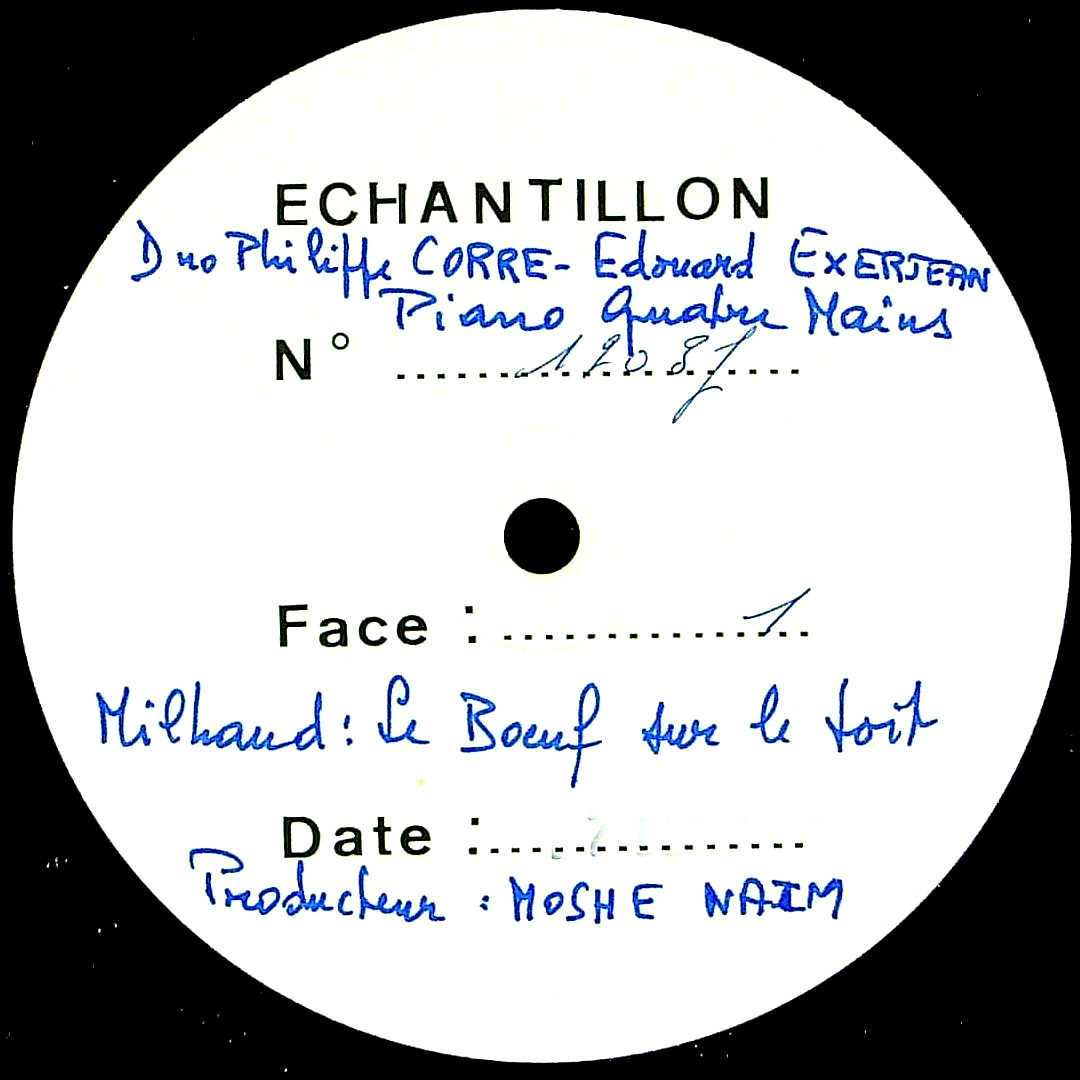 ECHANTILLON
Duo Philiffe CORRE - Edouard EXERJEAN
Piano Quatre Mains
N° ........12087........
Face : ........1..
Milhaud : Le Boeuf sur le toit
Date : ................
Producteur : MOSHE NAIM